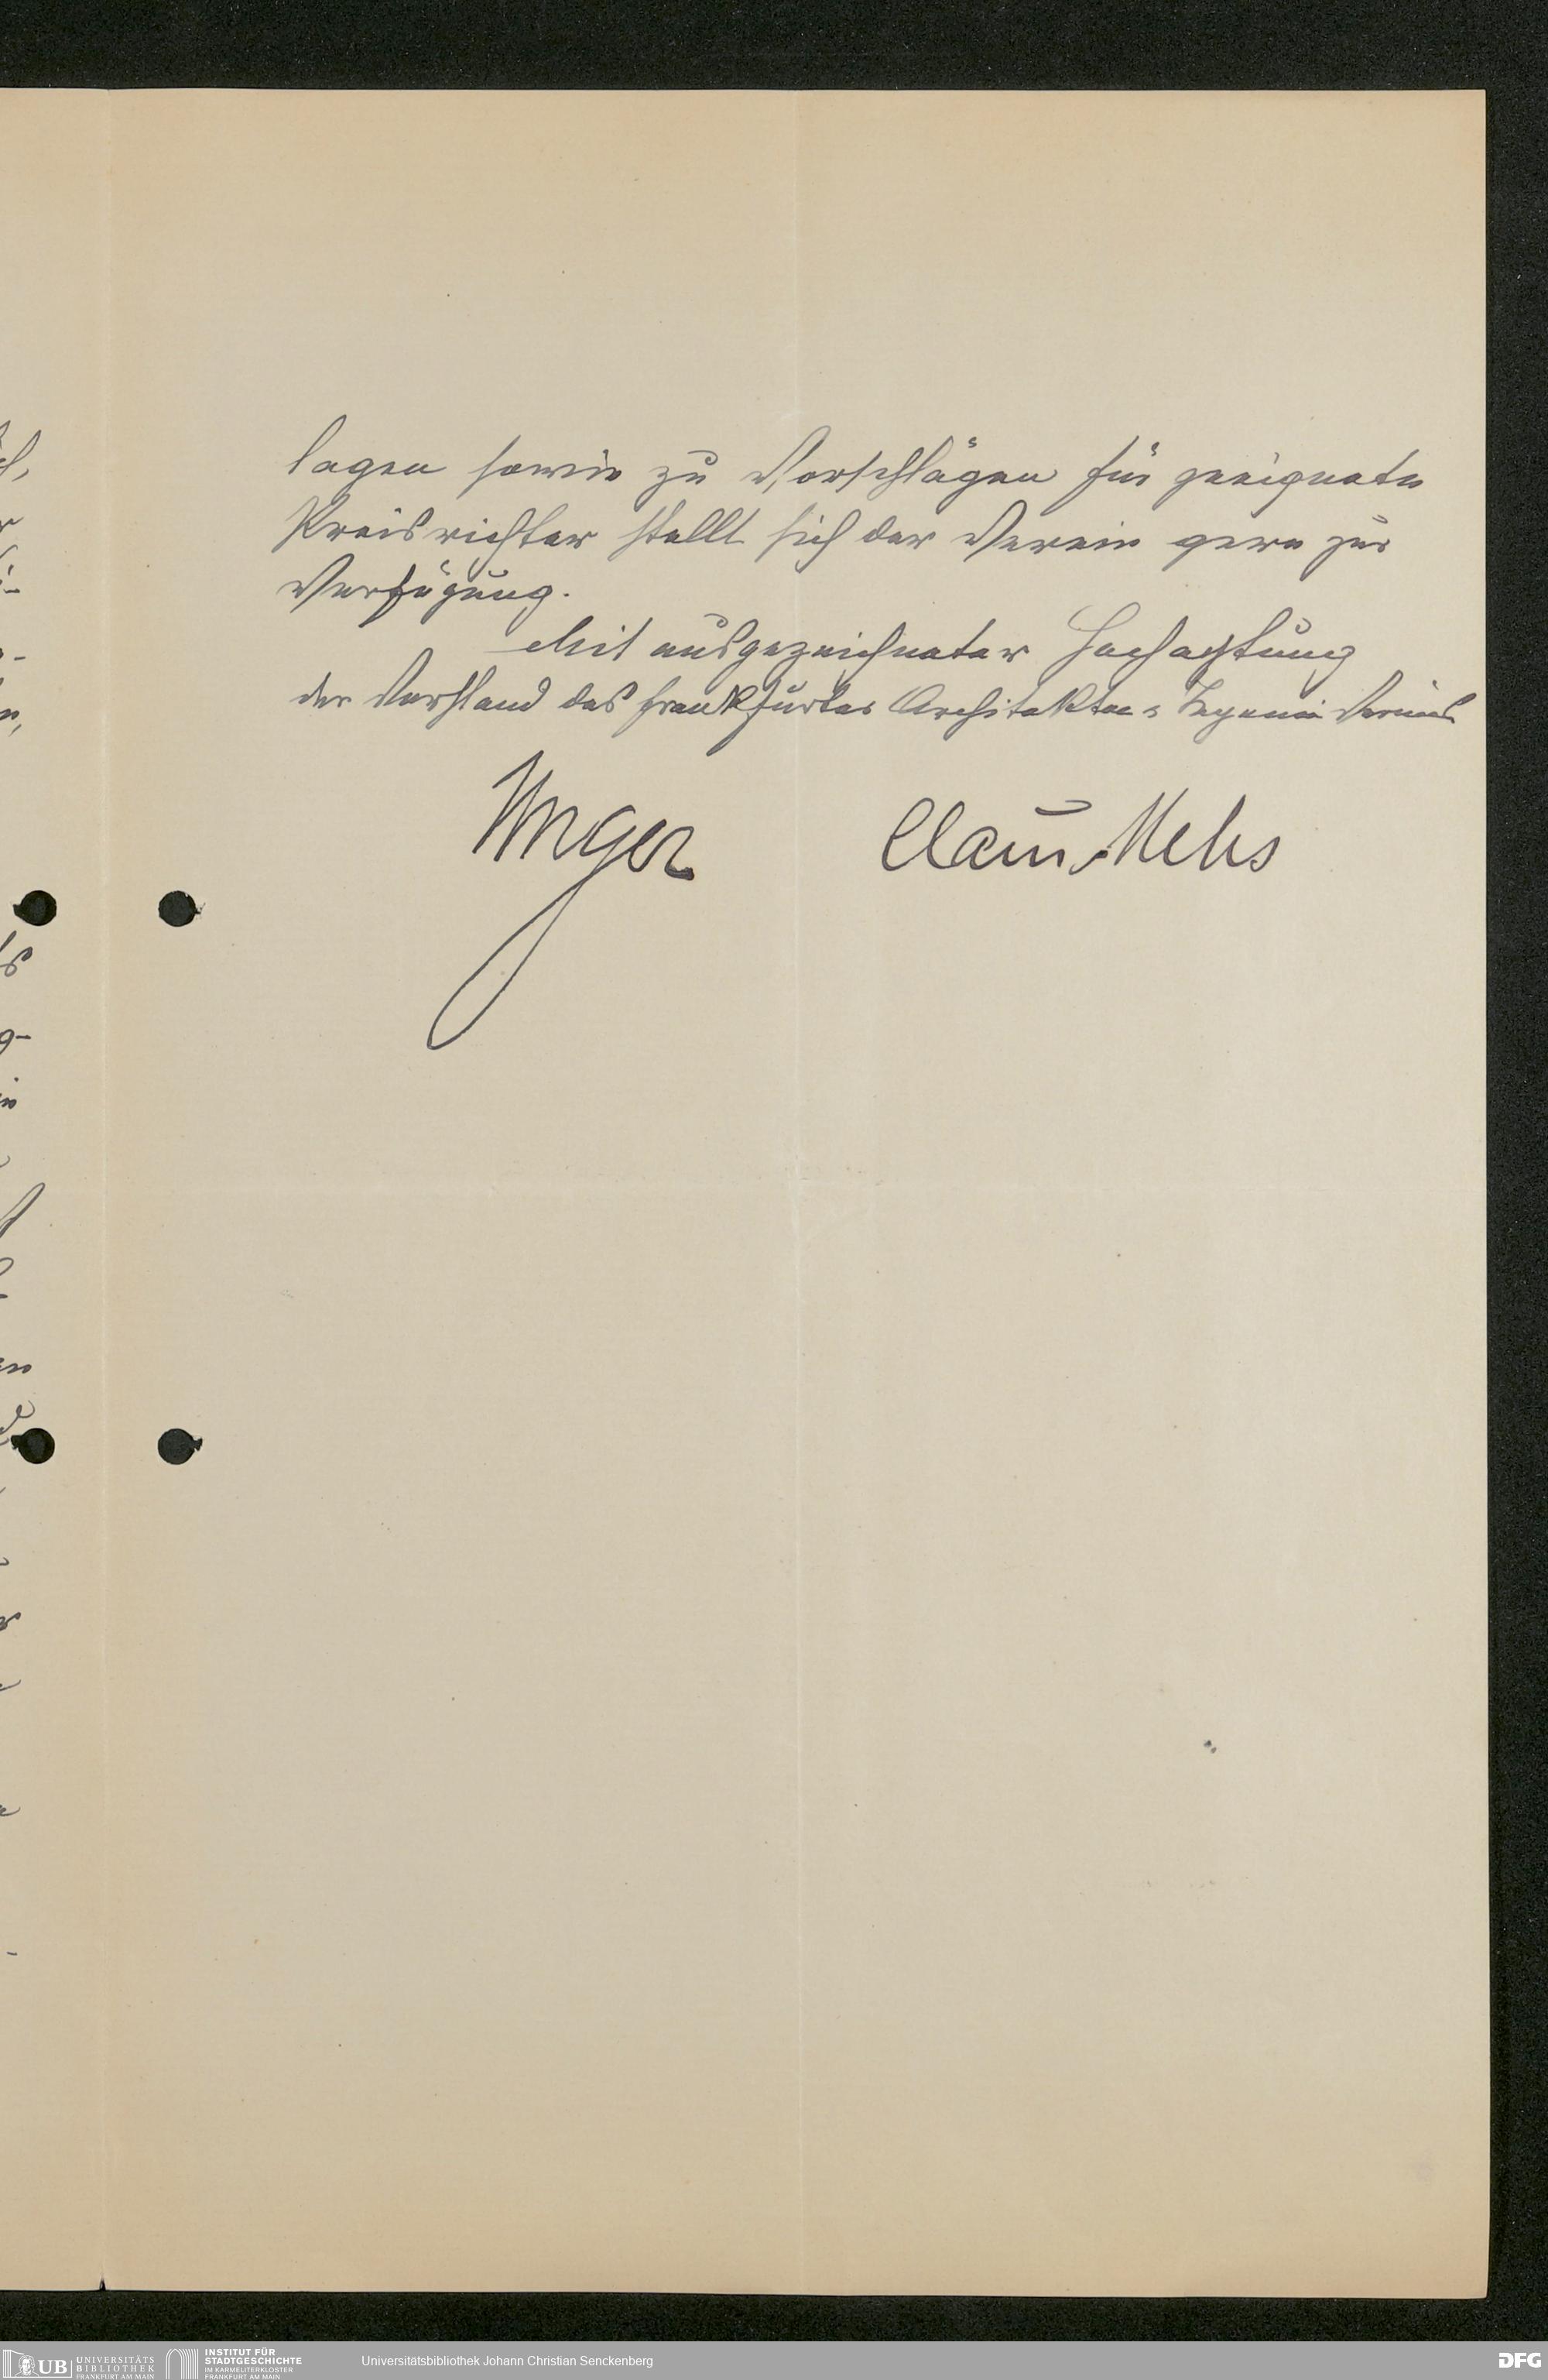 lagen sowie zu Vorschlägen für geeignete
Preisrichter stellt sich der Verein gern zur
Verfügung.
Mit ausgezeichneter Hochachtung
der Vorstand des Frankfurter Architekten- Ingenieur Vereins
Unger
Claus Mehs
UB UNIVERSITÄTS
BIBLIOTHEK
FRANKFURT AM MAIN
INSTITUT FÜR
STADTGESCHICHTE
IM KARMELITERKLOSTER
FRANKFURT AM MAIN
Universitätsbibliothek Johann Christian Senckenberg
DFG